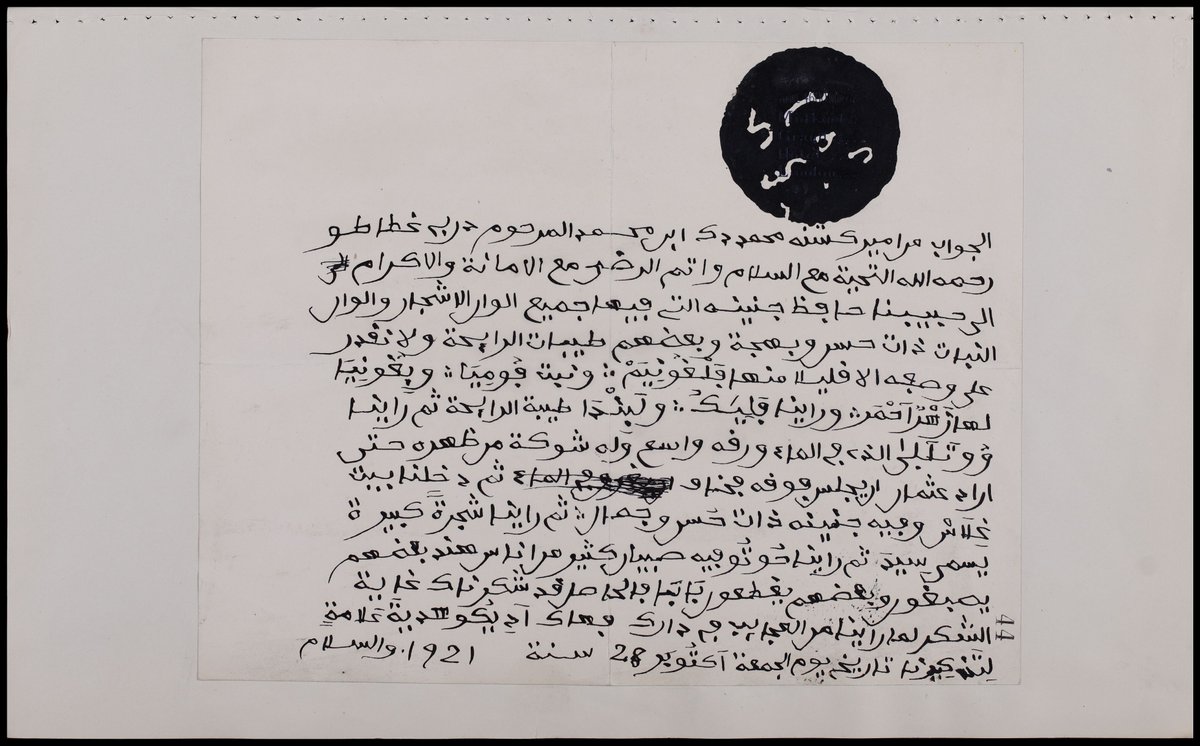 الجواب من امير كشنه محمد دك ابن محمد المرحوم
رحمه الله التحية مع السلام واتم الرضى مع الامانة والاكرام
الى حبيبنا حافظ جنينه التي فيها جميع الوان الاشجار والوان
النبات ذات حسن وبهجة وبعضهم طيبات الرايحة ولا نقدر
على وصفه الا قليلا منها
وراينا طيبة الرايحة ثم راينا
الذي في الماء ورقه واسع وله شوكة من ظهره حتى
اراد عثمان ان يجلس فوقه فخاف ثم دخلنا بيت
غلاس وفيه جنينه ذات حسن وجمال ثم راينا شجرة كبيرة
يسمى ثم راينا فيه صبيان كثير من اناس هند بعضهم
يصبغون وبعضهم يقطعون فالحاصل قد شكرناك غاية
الشكر لما راينا من العجايب في دارك فهاك هدية علامة
لتذكيرنا تاريخ يوم الجمعة اكتوبر 28 سنة 1921 والسلام
44